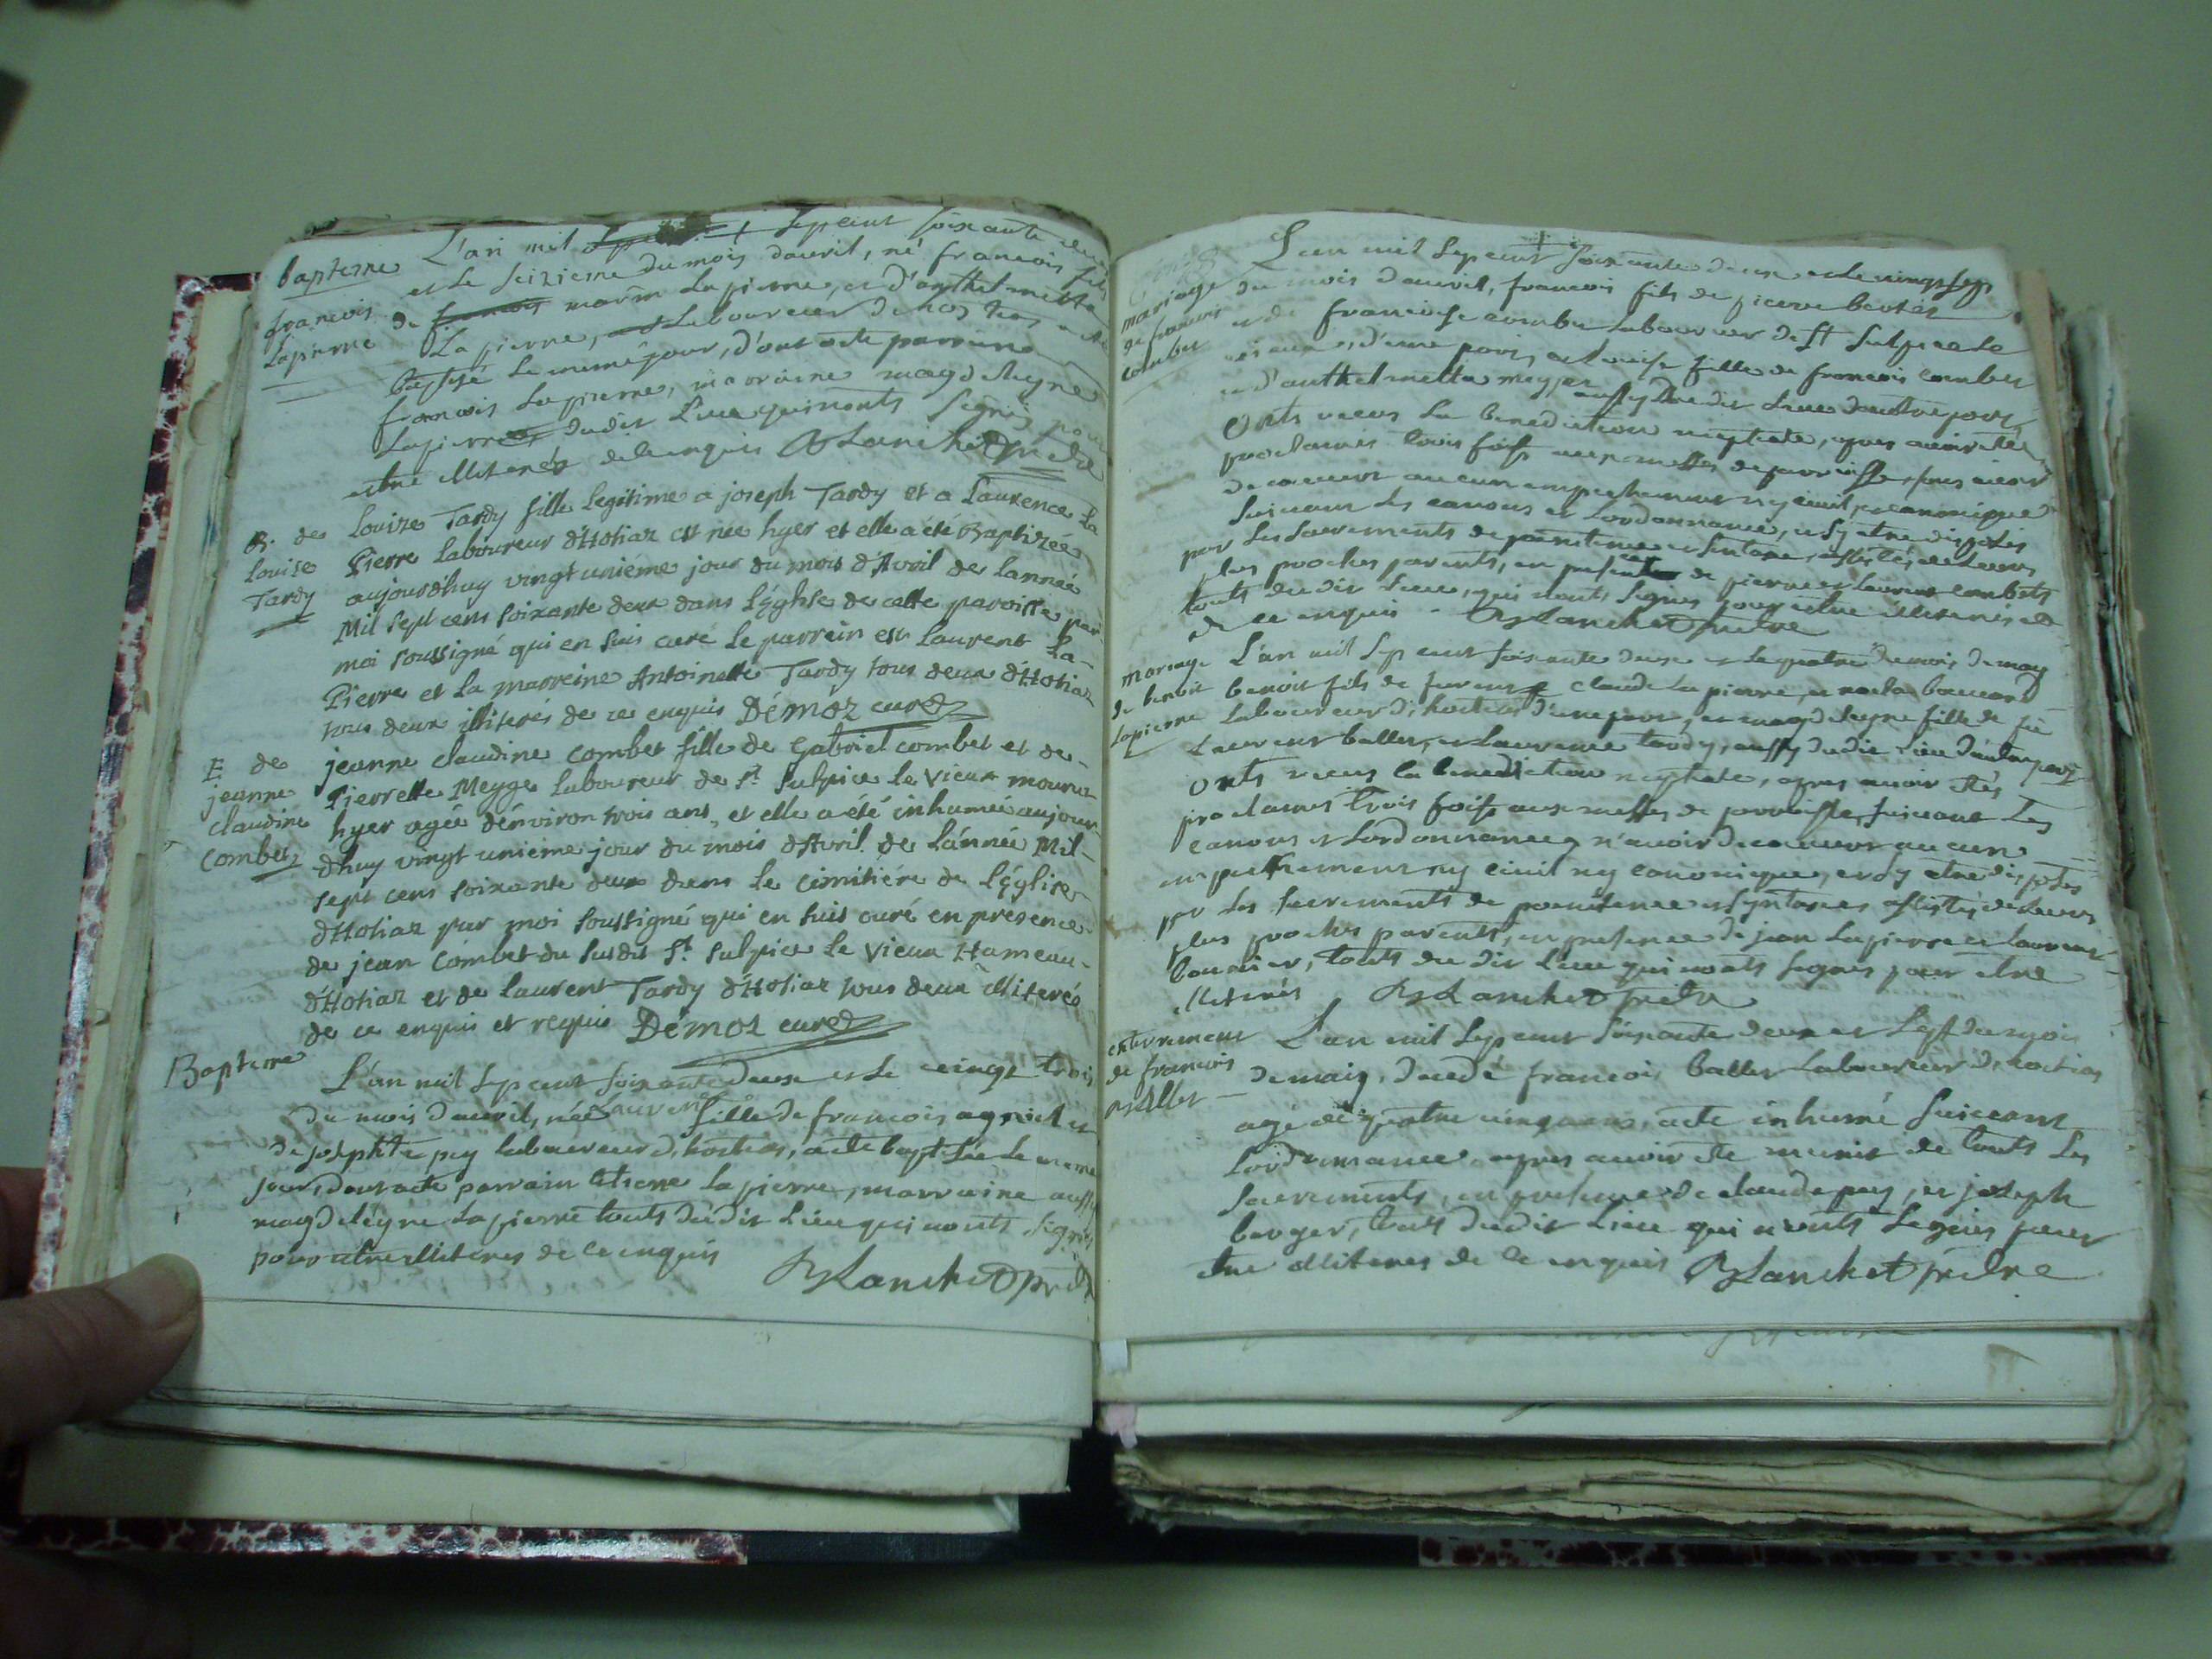 Bapteme
francois
Lapierre
L'an mil sepcent soixante deux
et le seizieme du mois davril, né francois fils
de francois marin Lapierre, et d'anthelmette
La pierre, Laboureur de hostias a été
baptisé le meme jour, d'ont acte parrain
francois Lapierre, marraine magdeleyne
Lapierre dudit Lieu qui nonts signés pour
estre illiterés de ce enquis Blanchet pretre
B. de
Louise
Tardy
Louize Tardy fille legitime a joseph Tardy et a Laurence La
Pierre laboureur d'Hotiaz est née hyer et elle a été Baptizée
aujourd'huy vingt unième jour du mois d'Avril de lannée
Mil sept cens soixante deux dans l'Eglise de cette paroisse par
moi soussigné qui en suis curé le parrein est Laurent La-
Pierre et la marreine Antoinette Tardy tous deux d'Hotiaz
tous deux illiterés de ce enquis Démoz curé
E de
jeanne
claudine
Combet
jeanne claudine combet fille de Gabriel combet et de-
Pierrette Meyge laboureur de St. Sulpice le vieux mourut
hyer agée d'environ trois ans, et elle a été inhumée aujour-
d'huy vingt unieme jour du mois d'Avril de l'année Mil-
sept cens soixante deux dans le cimitiére de l'Eglise
d'Hotiaz par moi soussigné qui en suis curé en presence
de jean Combet du susdit St. Sulpice le vieux Hameau-
d'Hotiaz et de laurent Tardy d'Hotiaz tous deux illiterés
de ce enquis et requis Démoz curé
Bapteme
L'an mil sepcent soixante deux et le vingt trois
du mois d'avril, née Laurence fille de francois agniel et
de josephte pey laboureur d'hostias, a été baptisée le meme
jour, dont acte parrain Etiene Lapierre, marraine aussy
magdeleyne Lapierre touts dudit Lieu qui nonts signés
pour etre illiteres de ce enquis Blanchet pretre
mariage
de francois
combet
L'an mil sepcent soixante deux et le vingt sept
du mois d'avril, francois fils de pierre
et de francoise combe Laboureur de St Sulpice le
vieux, d'une part, et Louise fille de francois combet
et d'anthelmette meyge, aussy dudit Lieu d'autre part,
onts recus La benediction nuptiale, apres avoir etés
proclamés trois fois aux messes de parroisse, sans avoir
decouvert aucun empechement ny civil, ny canonique
suivant les canons et Lordonnance, et sy etre disposés
par les sacrements de penitence et Sintaxe, assistés de Leurs
plus proches parents, en presence de pierre et Laurent combets
touts dudit Lieu, qui nonts signés pour etre illiterés
de ce enquis Blanchet pretre
mariage
de benoit
Lapierre
L'an mil sepcent soixante deux et le quatre du mois de may
benoit fils de claude Lapierre, et
Laboureur d'hostias d'une part, et magdeleyne fille de feu
Laurent ballet, et Laurence tardy, aussy dudit Lieu d'autre part
onts recus la benediction nuptiale, apres avoir etés
proclamés trois fois aux messes de parroisse, suivant Les
canons et Lordonnance, n'avoir decouvert aucun
empechement ny civil ny canonique, et sy etre disposés
par les sacrements de penitence et syntaxes assistés de Leurs
plus proches parents, en presence de jean Lapierre et Laurent
touts dudit Lieu qui nonts signés pour etre
illiterés Blanchet pretre
enterrement
de francois
Ballet
L'an mil sepcent soixante deux et sept du mois
de may, decedé francois Ballet Laboureur d'hostias
agé de quatre vingt ans, a eté inhumé suivant
Lordonnance, apres avoir eté munit de touts Les
sacrements, en presence de claude pey, et joseph
berger, touts dudit Lieu qui nonts signés pour
etre illiteres de ce enquis Blanchet pretre